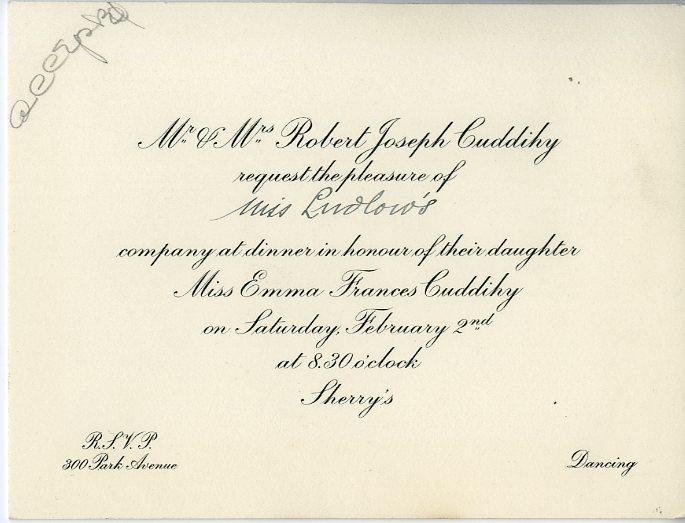 accepted
Mr. & Mrs. Robert Joseph Cuddihy
request the pleasure of
Miss Ludlow's
company at dinner in honour of their daughter
Miss Emma Frances Cuddihy
on Saturday, February 2nd
at 8.30 o'clock
Sherry's
R.S.V.P.
300 Park Avenue
Dancing